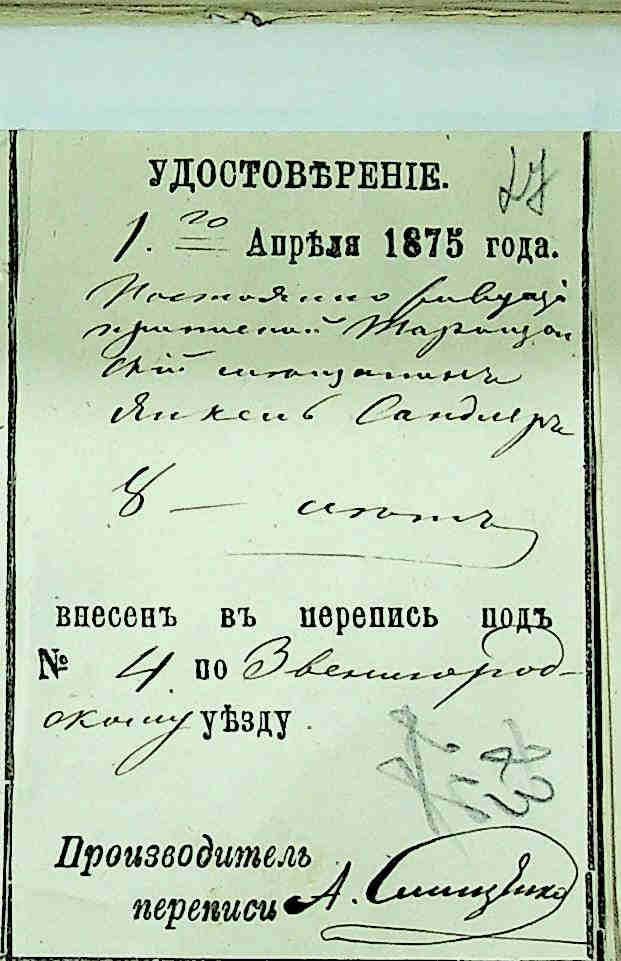 УДОСТОВѢРЕНІЕ.
27
1. го Апрѣля 1875 года.
Постоянно
приписной Таращан
скій мещанинъ
Янкель Сандлеръ
8 — лѣтъ
внесенъ въ перепись подъ
№ 4. по Звенигород-
скому уѣзду
Производитель
переписи А.